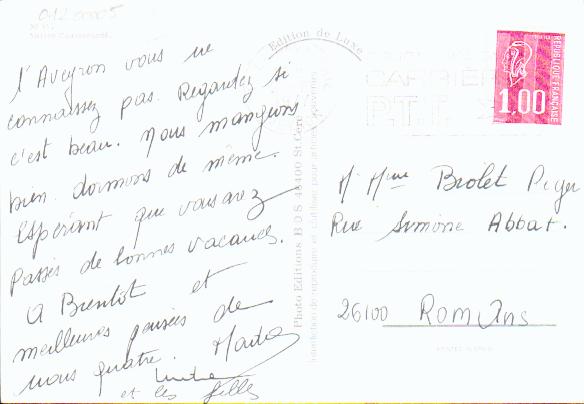 0120005
Edition de Luxe
l'Aveyron vous ne
connaissez pas. Regardez si
c'est beau. Nous mangeons
bien. dormons de même.
Espérant que vous avez
Passés de bonnes vacances.
A Bientôt et
meilleures pensées de
nous quatre.
et les filles
Photo Editions BOS 46400 St Céré
Interdiction de reproduire et d'utiliser pour
CARRIER
P.T.T.
REPUBLIQUE FRANÇAISE
1.00
M Mme Briolet
Rue Simone Abbat.
26100 Romans